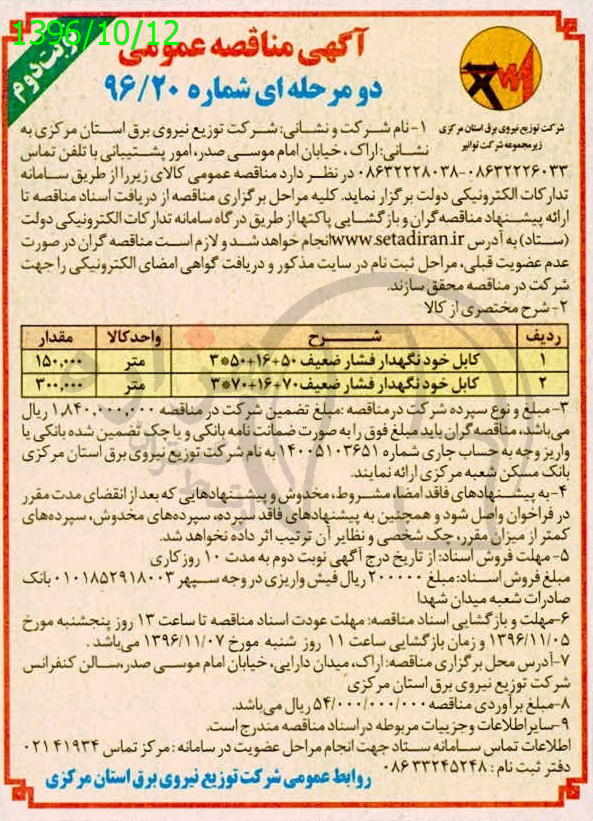 1396/10/12
نوبت دوم
آگهی مناقصه عمومی
دو مرحله ای شماره ۹۶/۲۰
شرکت توزیع نیروی برق استان مرکزی
زیرمجموعه شرکت توانیر
۱-نام شرکت و نشانی: شرکت توزیع نیروی برق استان مرکزی به
نشانی: اراک، خیابان امام موسی صدر، امور پشتیبانی با تلفن تماس
۰۸۶۳۲۲۲۶۰۳۳-۰۸۶۳۲۲۲۸۰۳۸ در نظر دارد مناقصه عمومی کالای زیر را از طریق سامانه
تدارکات الکترونیکی دولت برگزار نماید. کلیه مراحل برگزاری مناقصه از دریافت اسناد مناقصه تا
ارائه پیشنهاد مناقصه گران و بازگشایی پاکتها از طریق درگاه سامانه تدارکات الکترونیکی دولت
(ستاد) به آدرس www.setadiran.ir انجام خواهد شد و لازم است مناقصه گران در صورت
عدم عضویت قبلی، مراحل ثبت نام در سایت مذکور و دریافت گواهی امضای الکترونیکی را جهت
شرکت در مناقصه محقق سازند.
۲-شرح مختصری از کالا
ردیف شرح واحدکالا مقدار
۱ کابل خود نگهدار فشار ضعیف ۵۰+۱۶+۵۰*۳ متر ۱۵۰,۰۰۰
۲ کابل خود نگهدار فشار ضعیف ۷۰+۱۶+۷۰*۳ متر ۳۰۰,۰۰۰
۳-مبلغ و نوع سپرده شرکت در مناقصه: مبلغ تضمین شرکت در مناقصه ۱,۸۴۰,۰۰۰,۰۰۰ ریال
می‌باشد، مناقصه گران باید مبلغ فوق را به صورت ضمانت نامه بانکی و یا چک تضمین شده بانکی یا
واریز وجه به حساب جاری شماره ۱۴۰۰۵۱۰۳۶۵۱ به نام شرکت توزیع نیروی برق استان مرکزی
بانک مسکن شعبه مرکزی ارائه نمایند.
۴-به پیشنهادهای فاقد امضا، مشروط، مخدوش و پیشنهادهایی که بعد از انقضای مدت مقرر
در فراخوان واصل شود و همچنین به پیشنهادهای فاقد سپرده، سپرده‌های مخدوش، سپرده‌های
کمتر از میزان مقرر، چک شخصی و نظایر آن ترتیب اثر داده نخواهد شد.
۵-مهلت فروش اسناد: از تاریخ درج آگهی نوبت دوم به مدت ۱۰ روز کاری
مبلغ فروش اسناد: مبلغ ۲۰۰۰۰۰ ریال فیش واریزی در وجه سپهر ۰۱۰۱۸۵۲۹۱۸۰۰۳ بانک
صادرات شعبه میدان شهدا
۶-مهلت و بازگشایی اسناد مناقصه: مهلت عودت اسناد مناقصه تا ساعت ۱۳ روز پنجشنبه مورخ
۱۳۹۶/۱۱/۰۵ و زمان بازگشایی ساعت ۱۱ روز شنبه مورخ ۱۳۹۶/۱۱/۰۷ می‌باشد.
۷-آدرس محل برگزاری مناقصه: اراک، میدان دارایی، خیابان امام موسی صدر، سالن کنفرانس
شرکت توزیع نیروی برق استان مرکزی
۸-مبلغ برآوردی مناقصه ۵۴/۰۰۰/۰۰۰/۰۰۰ ریال می‌باشد.
۹-سایر اطلاعات و جزییات مربوطه در اسناد مناقصه مندرج است.
اطلاعات تماس سامانه ستاد جهت انجام مراحل عضویت در سامانه: مرکز تماس ۰۲۱۴۱۹۳۴
دفتر ثبت نام: ۰۸۶۳۳۲۴۵۲۴۸
روابط عمومی شرکت توزیع نیروی برق استان مرکزی